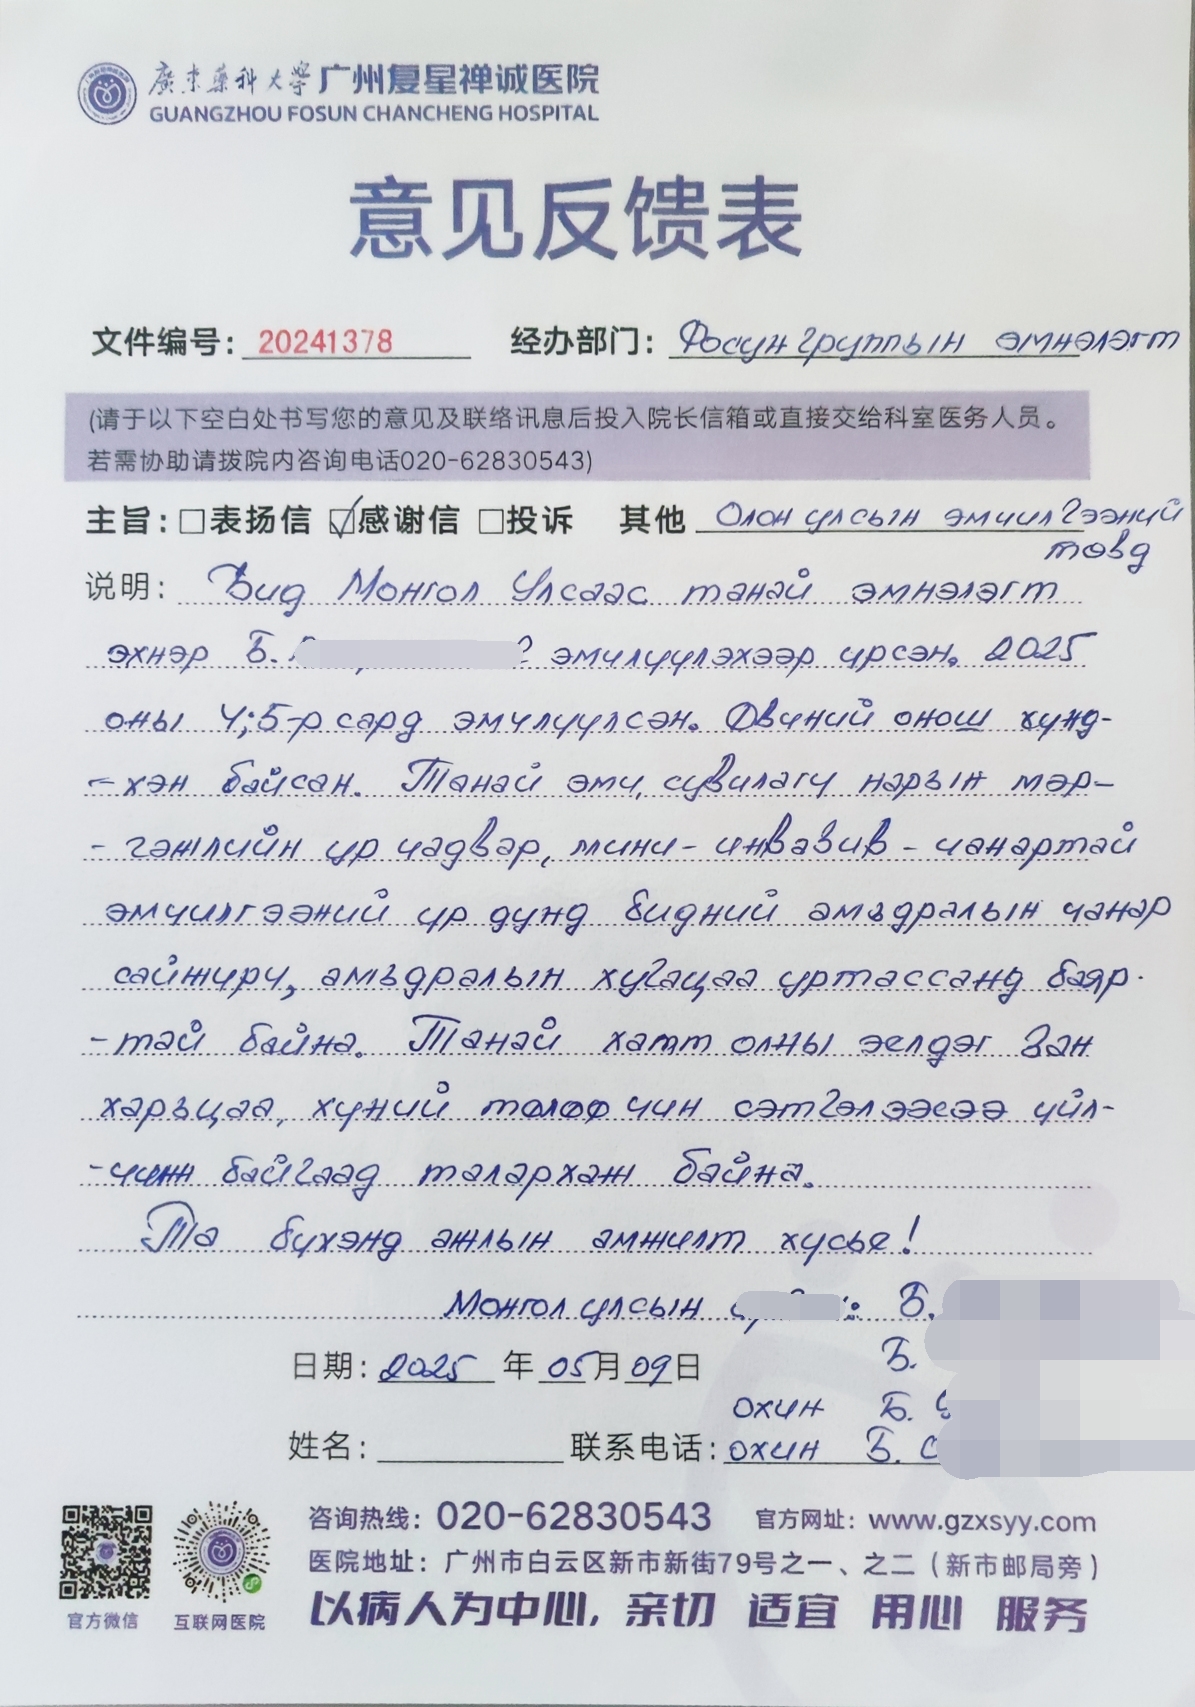 廣東藥科大學广州复星禅诚医院
GUANGZHOU FOSUN CHANCHENG HOSPITAL
意见反馈表
文件编号: 20241378 经办部门: Фосун группын эмнэлэгт
(请于以下空白处书写您的意见及联络讯息后投入院长信箱或直接交给科室医务人员。
若需协助请拨院内咨询电话020-62830543)
主旨: □表扬信 ☑感谢信 □投诉 其他 Олон улсын эмчилгээний
төвд
说明: Бид Монгол Улсаас танай эмнэлэгт
эхнэр Б. эмчлүүлэхээр ирсэн. 2025
оны 4;5-р сард эмчлүүлсэн. Өвчний онош хүнд-
-хэн байсан. Танай эмч, сувилагч нарын мэр-
-гэжлийн ур чадвар, мини-инвазив-чанартай
эмчилгээний үр дүнд бидний амьдралын чанар
сайжирч, амьдралын хугацаа уртассанд баяр-
-тай байна. Танай хамт олны эелдэг зан
харьцаа, хүний төлөө чин сэтгэлээсээ үйл-
-чилж байгаад талархаж байна.
Та бүхэнд ажлын амжилт хүсье!
Монгол улсын : Б.
日期: 2025 年 05 月 09 日 Б.
охин Б.
姓名: 联系电话: охин Б. С
咨询热线: 020-62830543 官方网址: www.gzxsyy.com
医院地址: 广州市白云区新市新街79号之一、之二（新市邮局旁）
官方微信 互联网医院 以病人为中心, 亲切 适宜 用心 服务